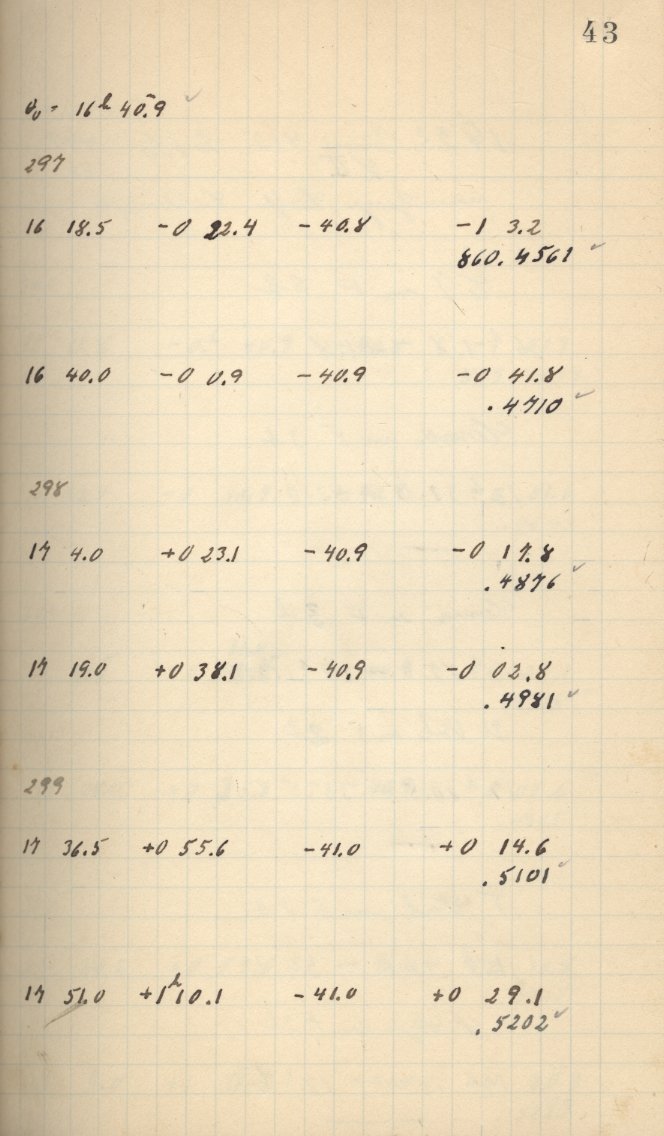 43
θ₀ = 16ʰ 40ᵐ.9 ✓
297
16 18.5 -0 22.4 -40.8 -1 3.2
860.4561 ✓
16 40.0 -0 0.9 -40.9 -0 41.8
.4710 ✓
298
17 4.0 +0 23.1 -40.9 -0 17.8
.4876 ✓
17 19.0 +0 38.1 -40.9 -0 02.8
.4981 ✓
299
17 36.5 +0 55.6 -41.0 +0 14.6
.5101 ✓
17 51.0 +1ʰ10.1 -41.0 +0 29.1
.5202 ✓